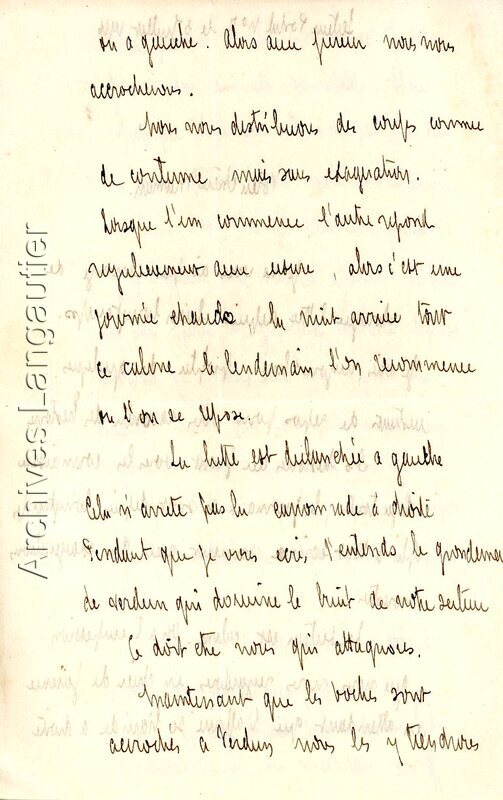 ou a gauche. Alors avec fureur nous nous
accrocherons.
Nous nous distribuons des coups comme
de contume mais sans exagération.
Lorsque l'un commence l'autre repond
regulierement avec usure, alors c'est une
journée chaude, la nuit arrivée tout
ce calme le lendemain l'on recommence
ou l'on se repose.
La lutte est declanchée a gauche
Cela n'arrete pas la canonnade à droite
Pendant que je vous ecris j'entends le grondement
de Verdun qui domine le bruit de notre secteur
Ce doit etre nous qui attaquons.
Maintenant que les boches sont
accrochés a Verdun nous les y tiendrons
Archives Langautier